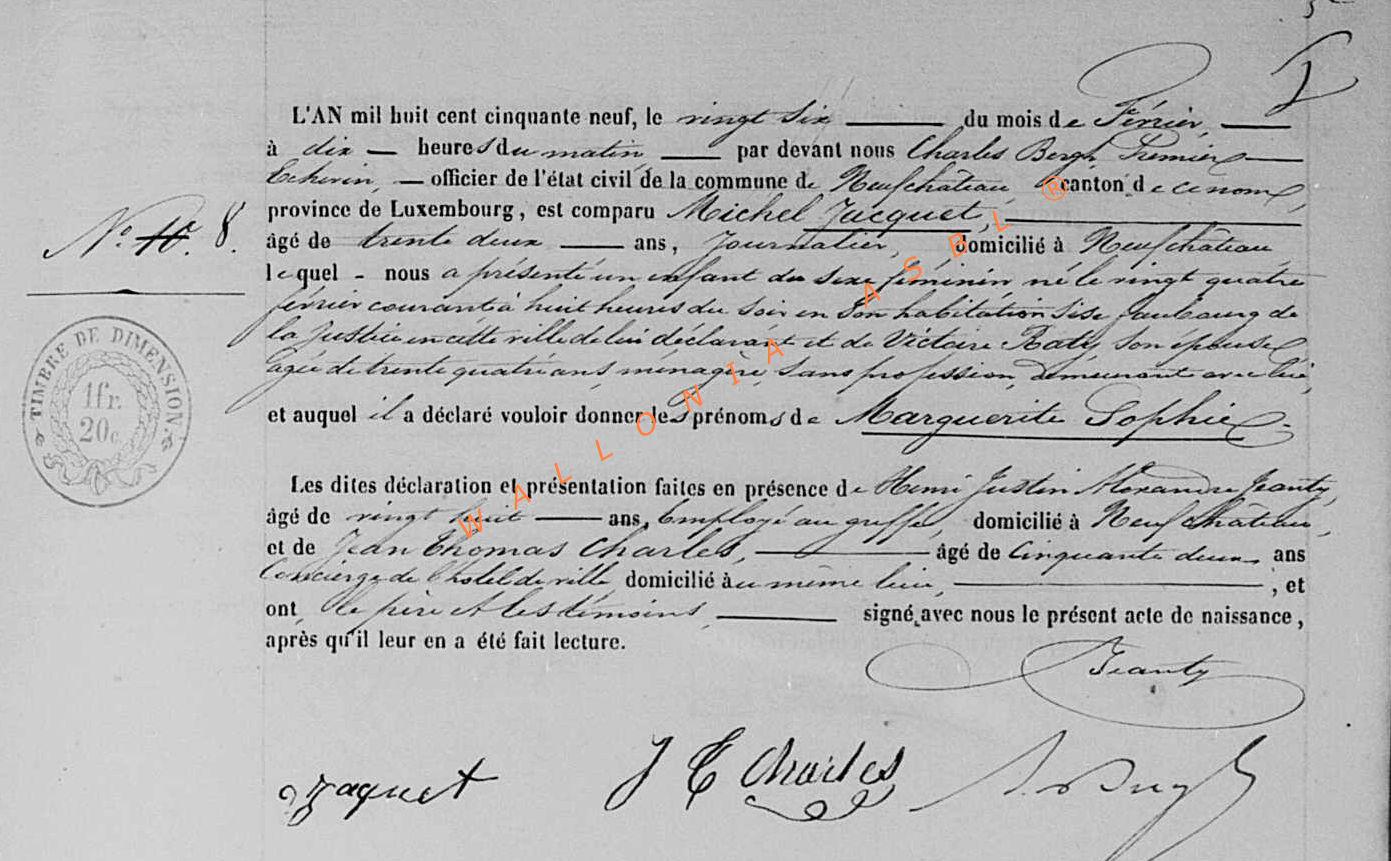 L'AN mil huit cent cinquante neuf, le vingt six du mois de Février,
à dix heures du matin, par devant nous Charles Bergh Premier
Echevin, officier de l'état civil de la commune de Neufchâteau, canton de ce nom,
province de Luxembourg, est comparu Michel Jacquet,
N° 10. 8.
âgé de trente deux ans, Journalier, domicilié à Neufchâteau,
lequel nous a présenté un enfant du sexe féminin né le vingt quatre
février courant à huit heures du soir en son habitation sise faubourg de
la Justice en cette ville de lui déclarant et de Victoire son épouse
agée de trente quatre ans, ménagère, sans profession, demeurant avec lui,
et auquel il a déclaré vouloir donner les prénoms de Marguerite Sophie
TIMBRE DE DIMENSION
1fr.
20c
Les dites déclaration et présentation faites en présence de Henri Justin Alexandre Jeanty,
âgé de vingt huit ans, Employé au greffe, domicilié à Neufchâteau,
et de Jean Thomas Charles, âgé de Cinquante deux ans
Concierge de l'hotel de ville domicilié au même lieu, ; et
ont, le père et les témoins, signé avec nous le présent acte de naissance,
après qu'il leur en a été fait lecture.
Jeanty
Jaquet J T Charles
WALLONIA ASBL ®